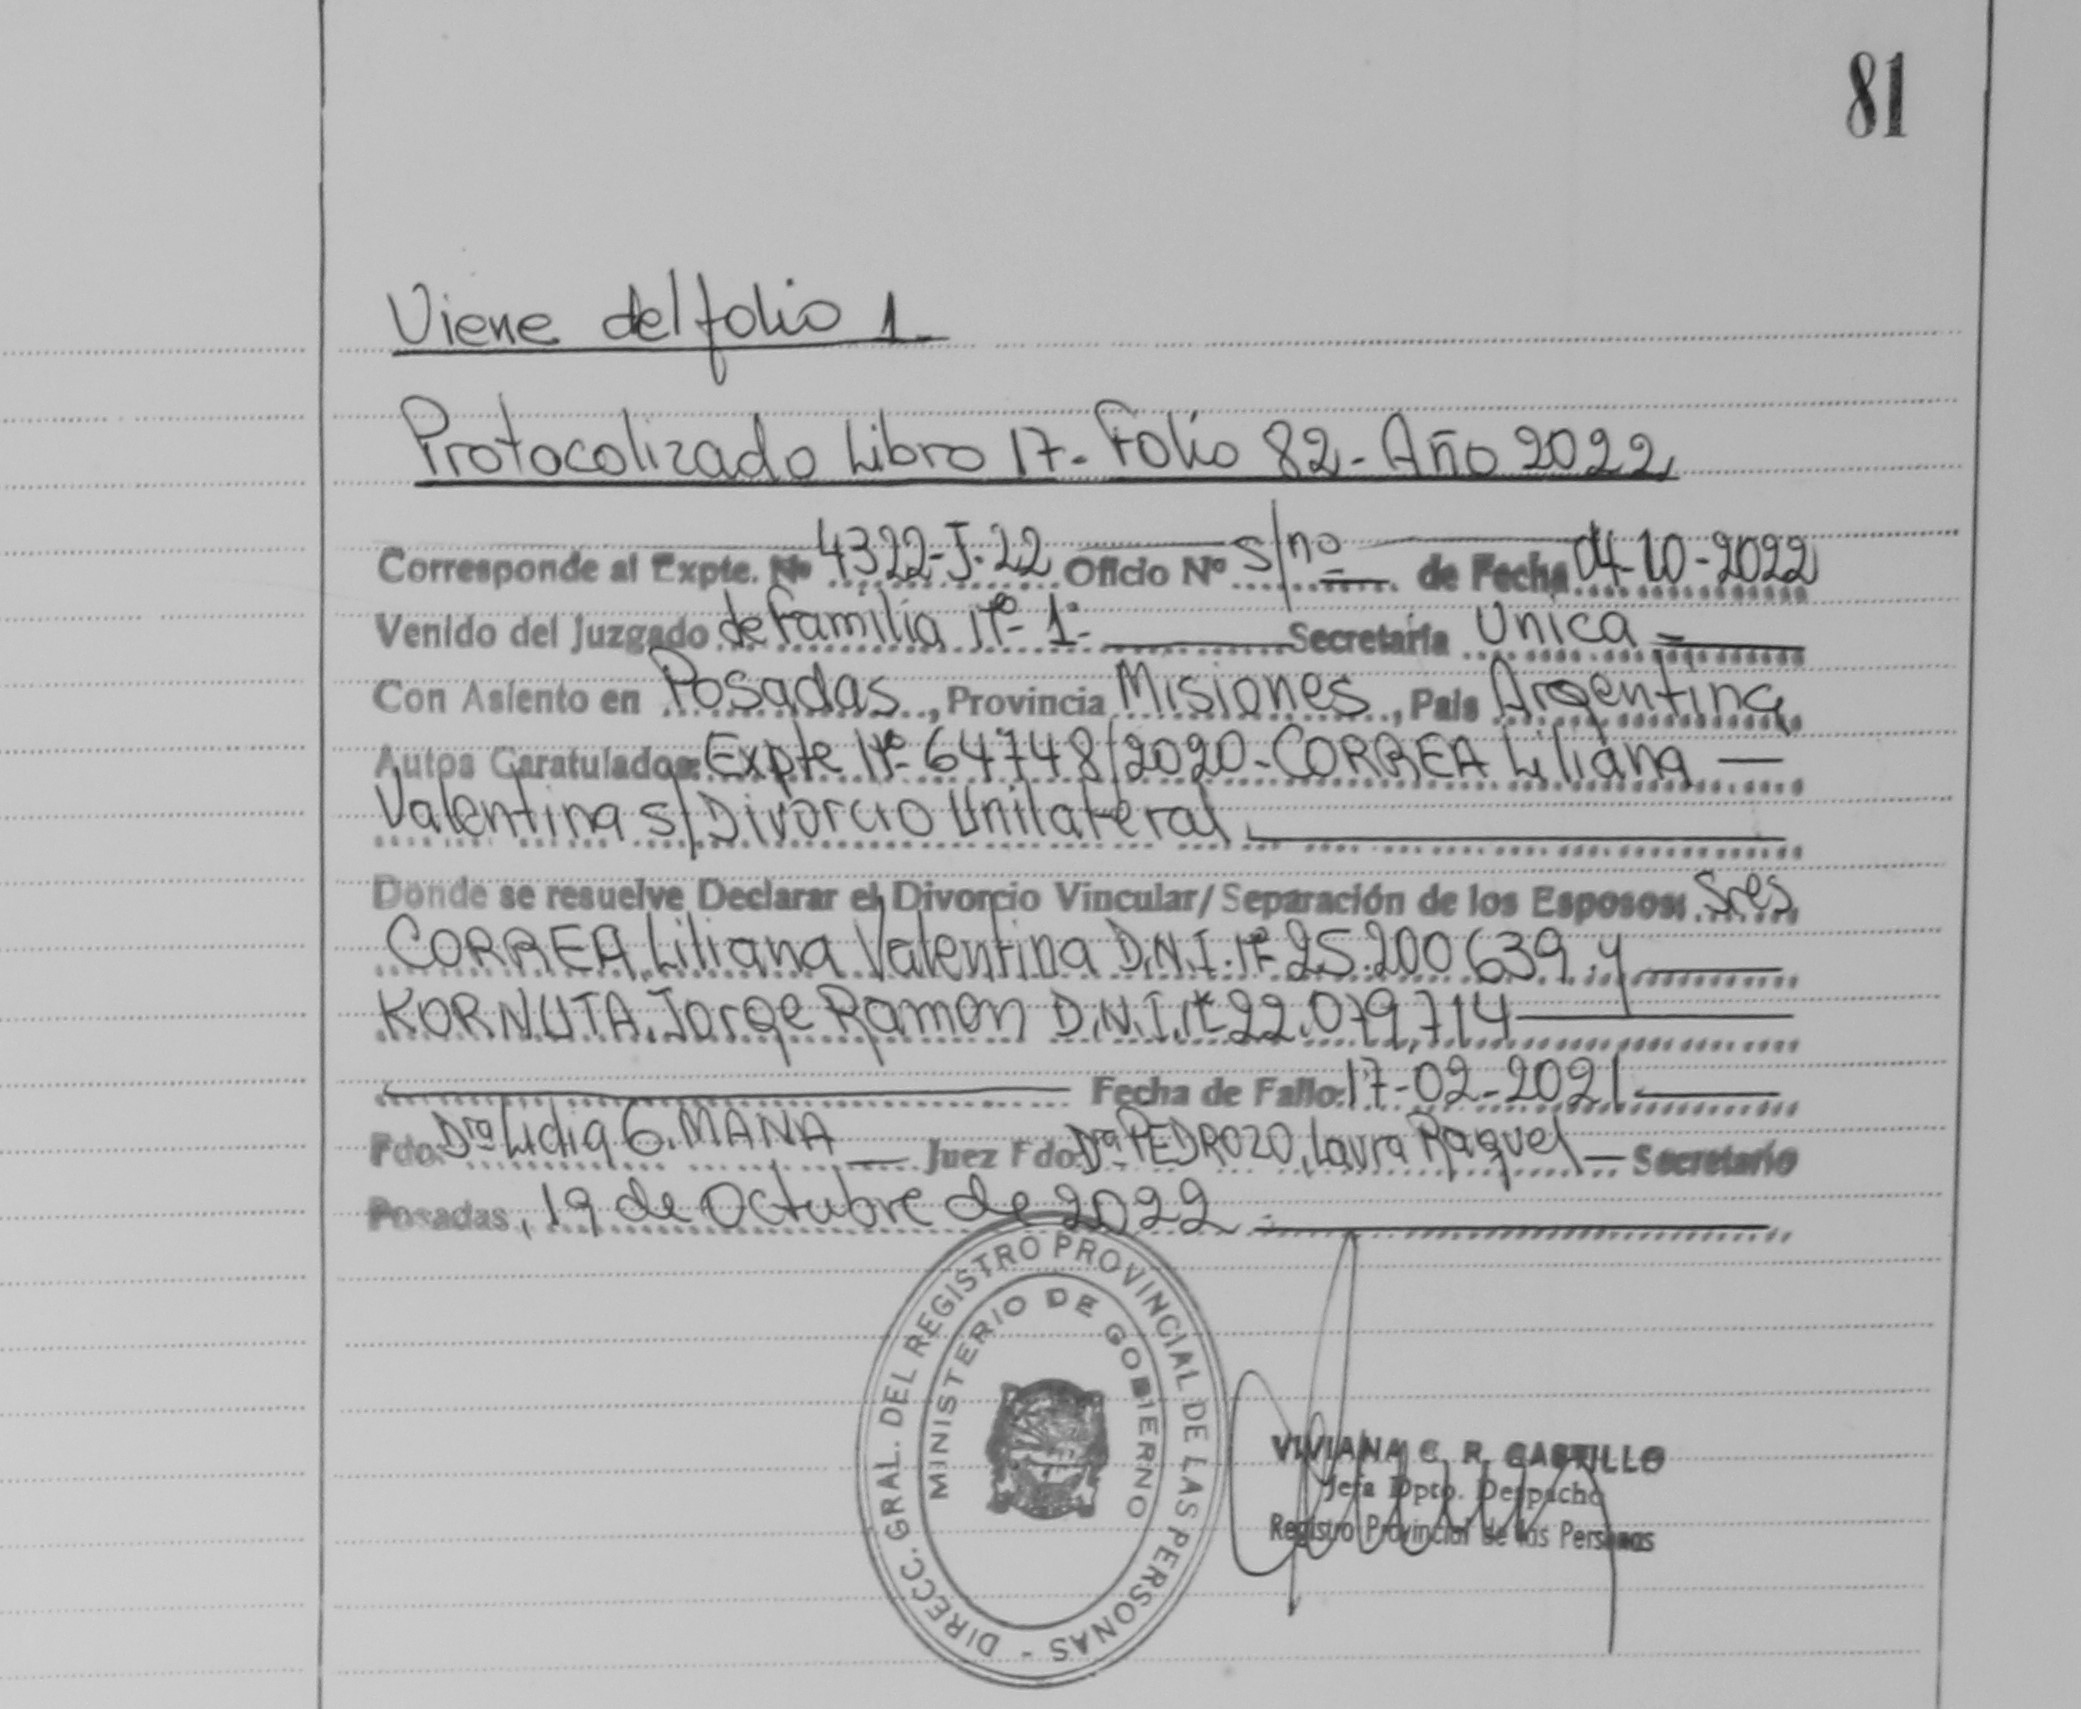 81
Viene del folio 1.
Protocolizado Libro 17. Folio 82 - Año 2022
Corresponde al Expte. Nº 4322-J-22 Oficio Nº s/nº de Fecha 04-10-2022
Venido del Juzgado de Familia Nº 1- Secretaría Unica -
Con Asiento en Posadas, Provincia Misiones, País Argentina
Autos Caratulados: Expte Nº 64748/2020-CORREA Liliana
Valentina s/ Divorcio Unilateral.
Donde se resuelve Declarar el Divorcio Vincular/Separación de los Esposos: Sres
CORREA, Liliana Valentina D.N.I. Nº 25.200639 y
KORNUTA, Jorge Ramon D.N.I. Nº 22.079.714
Fecha de Fallo: 17-02-2021
Fdo: Dra Lidia G. MANA Juez Fdo Dra PEDROZO, Laura Raquel Secretario
Posadas, 19 de Octubre de 2022.
DIRECC. GRAL. DEL REGISTRO PROVINCIAL DE LAS PERSONAS -
MINISTERIO DE GOBIERNO
VIVIANA C. R. CASTILLO
Jefa Dpto. Despacho
Registro Provincial de las Personas